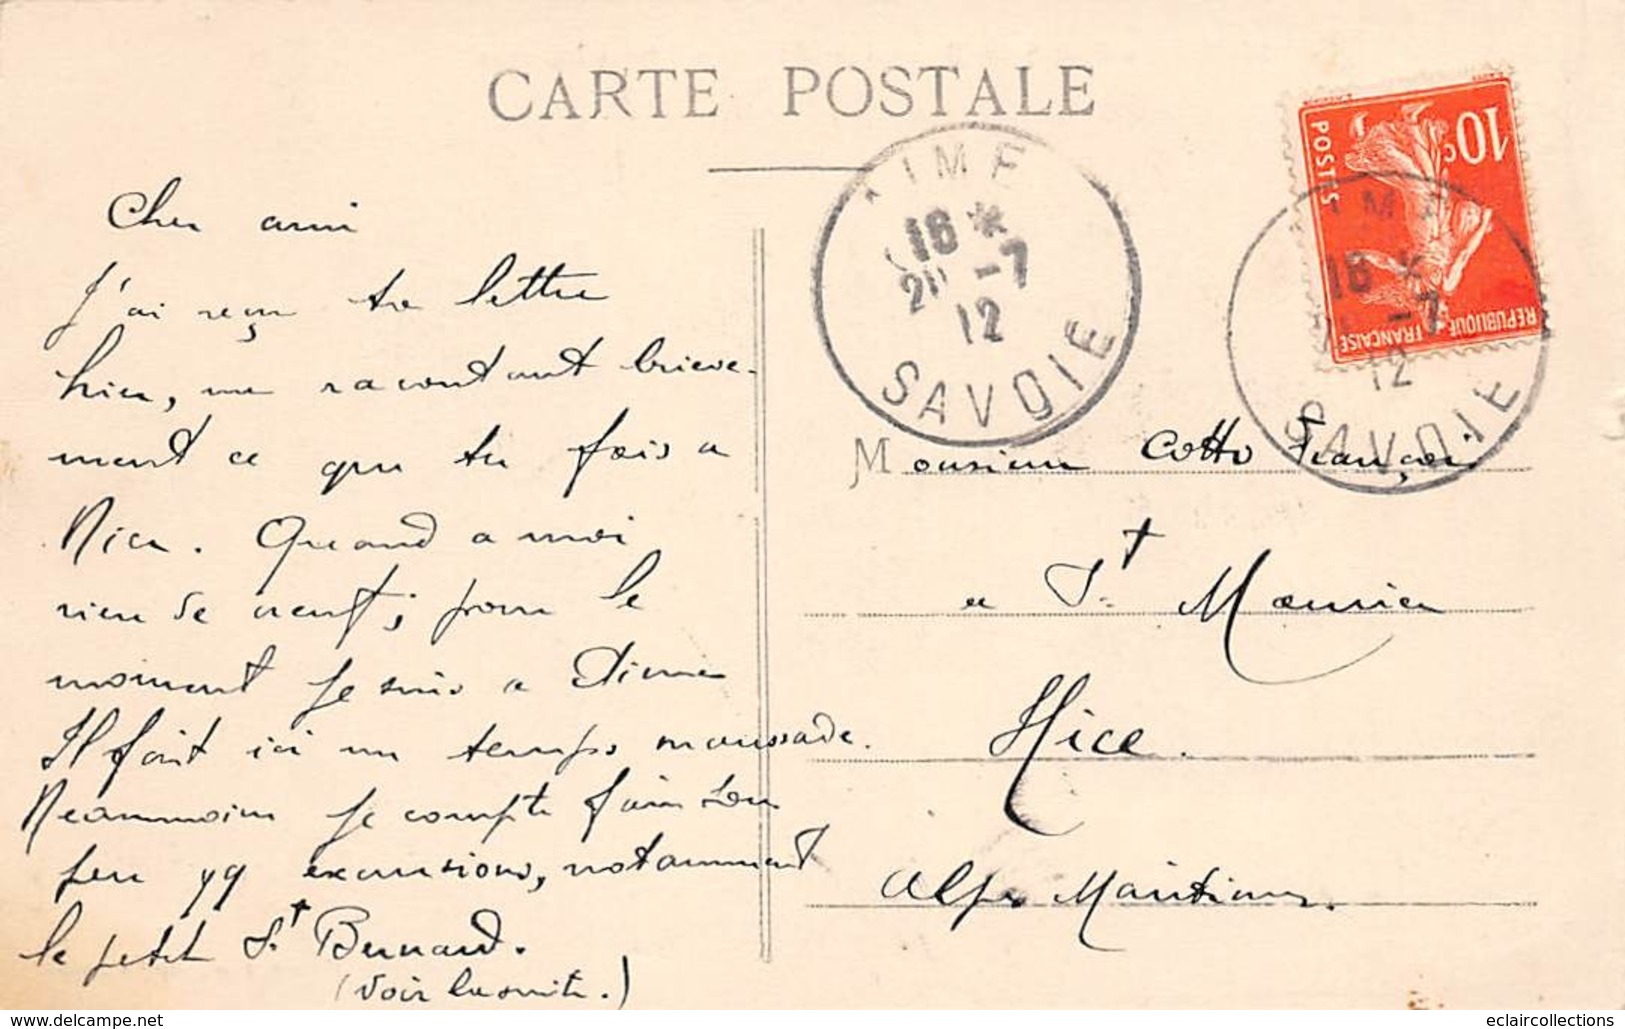 CARTE POSTALE
AIME
18 *
20 -7
12
SAVOIE
10c
POSTES
REPUBLIQUE
FRANÇAISE
IME
18 *
-7
12
SAVOIE
Cher ami
J'ai reçu ta lettre
hier, me racontant brieve-
ment ce que tu fais a
Nice. Quand a moi
rien de neuf; pour le
moment je suis a Aime
Il fait ici un temps maussade.
Neammoins je compte faire sou
peu qq excursions, notamment
le petit St Bernard.
(Voir la suite.)
Monsieur Cotto François
a St Maurice
Nice.
Alpes Maritimes.
eclaircollections
www.delcampe.net